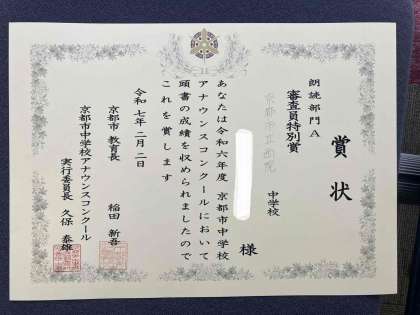 賞状
朗読部門A
審査員特別賞
京都市立西院
中学校
様
あなたは令和六年度 京都市中学校
アナウンスコンクールにおいて
頭書の成績を収められましたので
これを賞します
令和七年二月二日
京都市 教育長 稲田 新吾
京都市中学校アナウンスコンクール
実行委員長 久保 泰雄